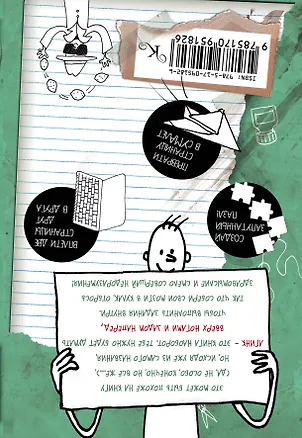 Это может быть похоже на книгу
(да, не особо, конечно, но всё же...),
но, исходя из самого названия,
АГИНК – это книга наоборот. Тебе нужно будет думать
вверх ногами и задом наперед,
чтобы выполнить задания внутри.
Так что собери свои мозги в кулак, отбрось
здравомыслие и смело совершай недоразумения!
СОЗДАЙ
ЗАПУТАННЫЙ
ПАЗЛ
ВПЛЕТИ ДВЕ
СТРАНИЦЫ ДРУГ
В ДРУГА
ПРЕВРАТИ
СТРАНИЦУ
В САМОЛЕТ
ISBN 978-5-17-095182-6
9 785170 951826